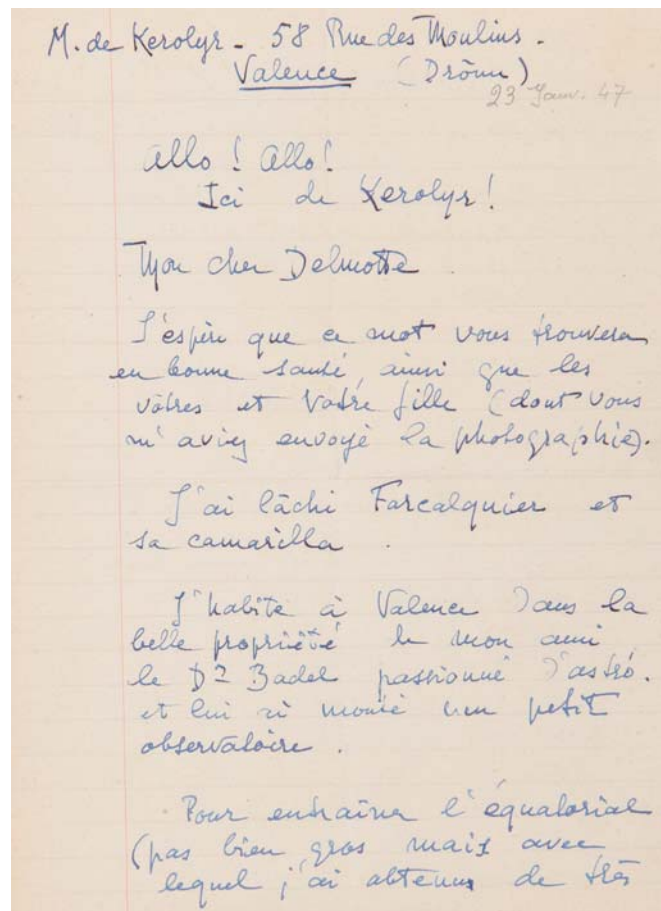 M. de Kerolyr - 58 Rue des Moulins -
Valence (Drôme)
23 Janv. 47
Allo ! Allo !
Ici de Kerolyr !
Mon cher Delmotte
J'espère que ce mot vous trouvera
en bonne santé, ainsi que les
vôtres et votre fille (dont vous
m'aviez envoyé la photographie).
J'ai lâché Forcalquier et
sa camarilla.
J'habite à Valence dans la
belle propriété de mon ami
le Dr Badel passionné d'astro.
et lui ai monté un petit
observatoire.
Pour entraîner l'équatorial
(pas bien gros mais avec
lequel j'ai obtenus de très